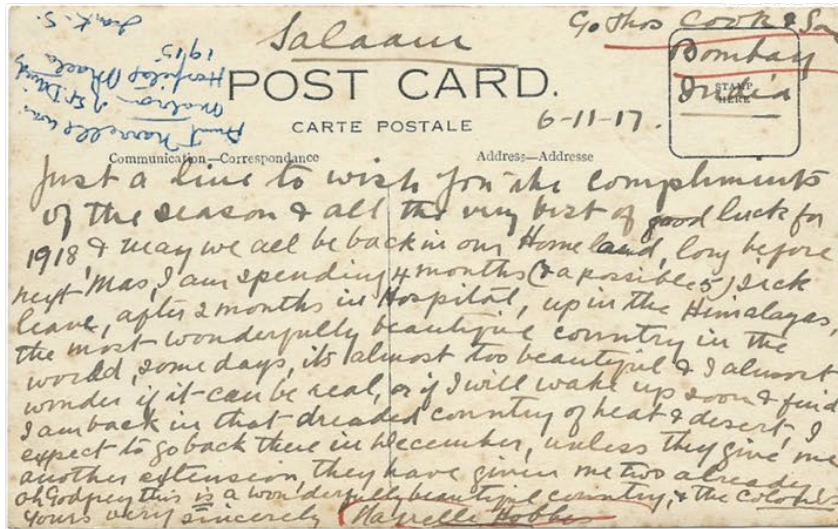 Salaam
C/o Thos Cook & Son
Bombay
India
POST CARD.
CARTE POSTALE
STAMP
HERE
6-11-17.
Communication—Correspondance
Address—Addresse
Just a line to wish you the compliments
of the season & all the very best of good luck for
1918 & may we all be back in our Homeland, long before
next 'Mas, I am spending 4 months (& a possible 5) sick
leave, after 2 months in Hospital, up in the Himalayas
the most wonderfully beautiful country in the
world, some days, its almost too beautiful & I almost
wonder if it can be real, or if I will wake up soon & find
I am back in that dreaded country of heat & desert, I
expect to go back there in December, unless they give me
another extension, they have given me two already
Oh Godfrey this is a wonderfully beautiful country, & the colouring
Yours very sincerely Narrelle Hobbes
Aunt Narrelle was
Matron of St David
Hospital
1915
Frank S.